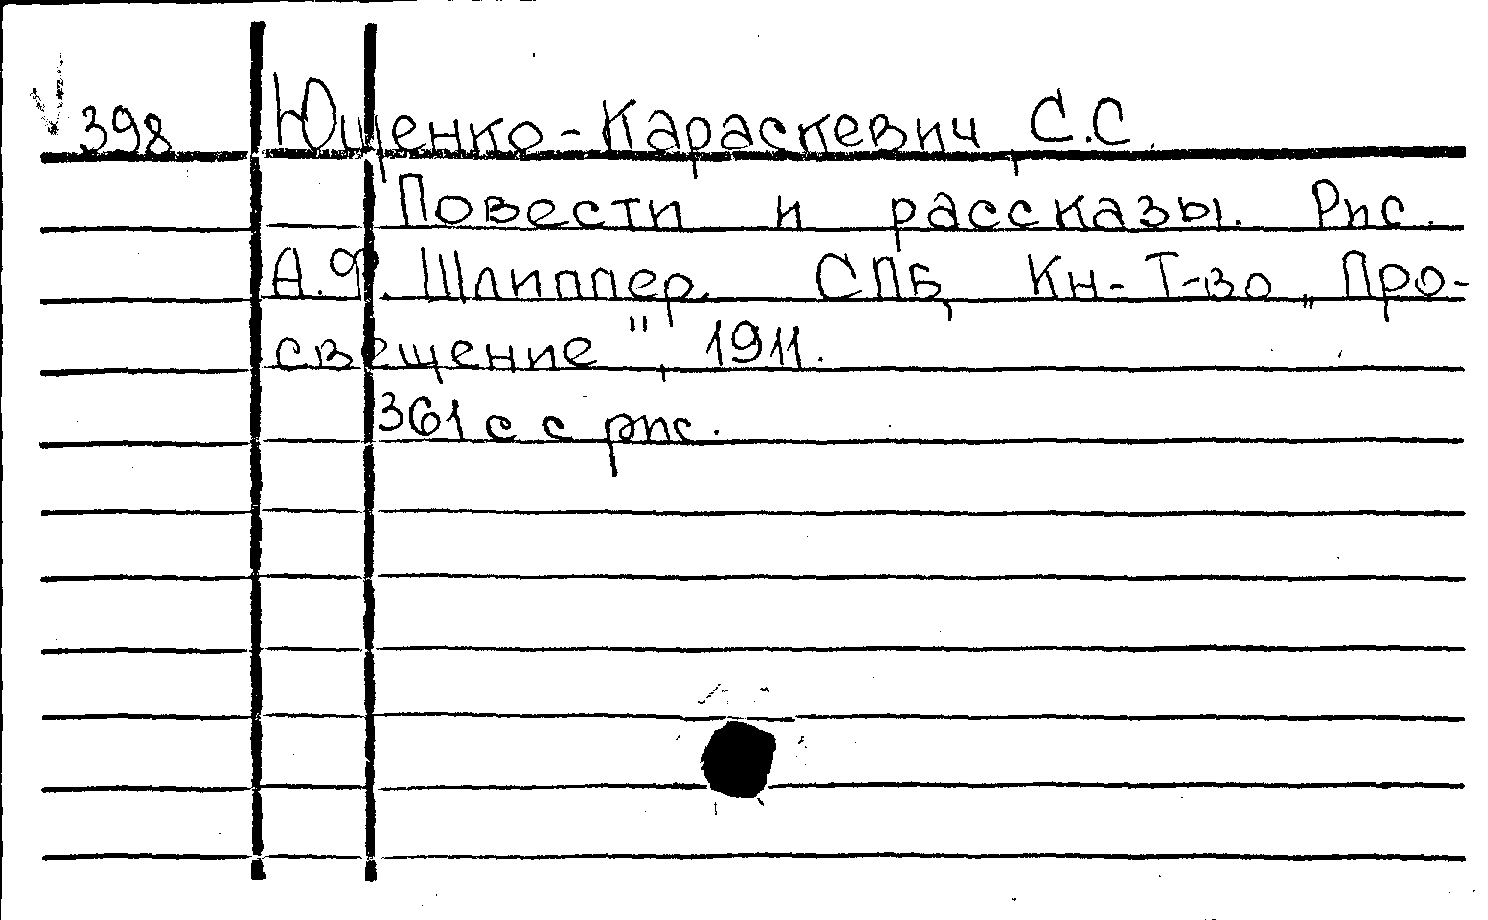 398 Ющенко-Караскевич, С.С.
Повести и рассказы. Рис.
А.Ф. Шлиппер. СПБ, Кн-Т-во „Про-
свещение", 1911.
361 с с рис.